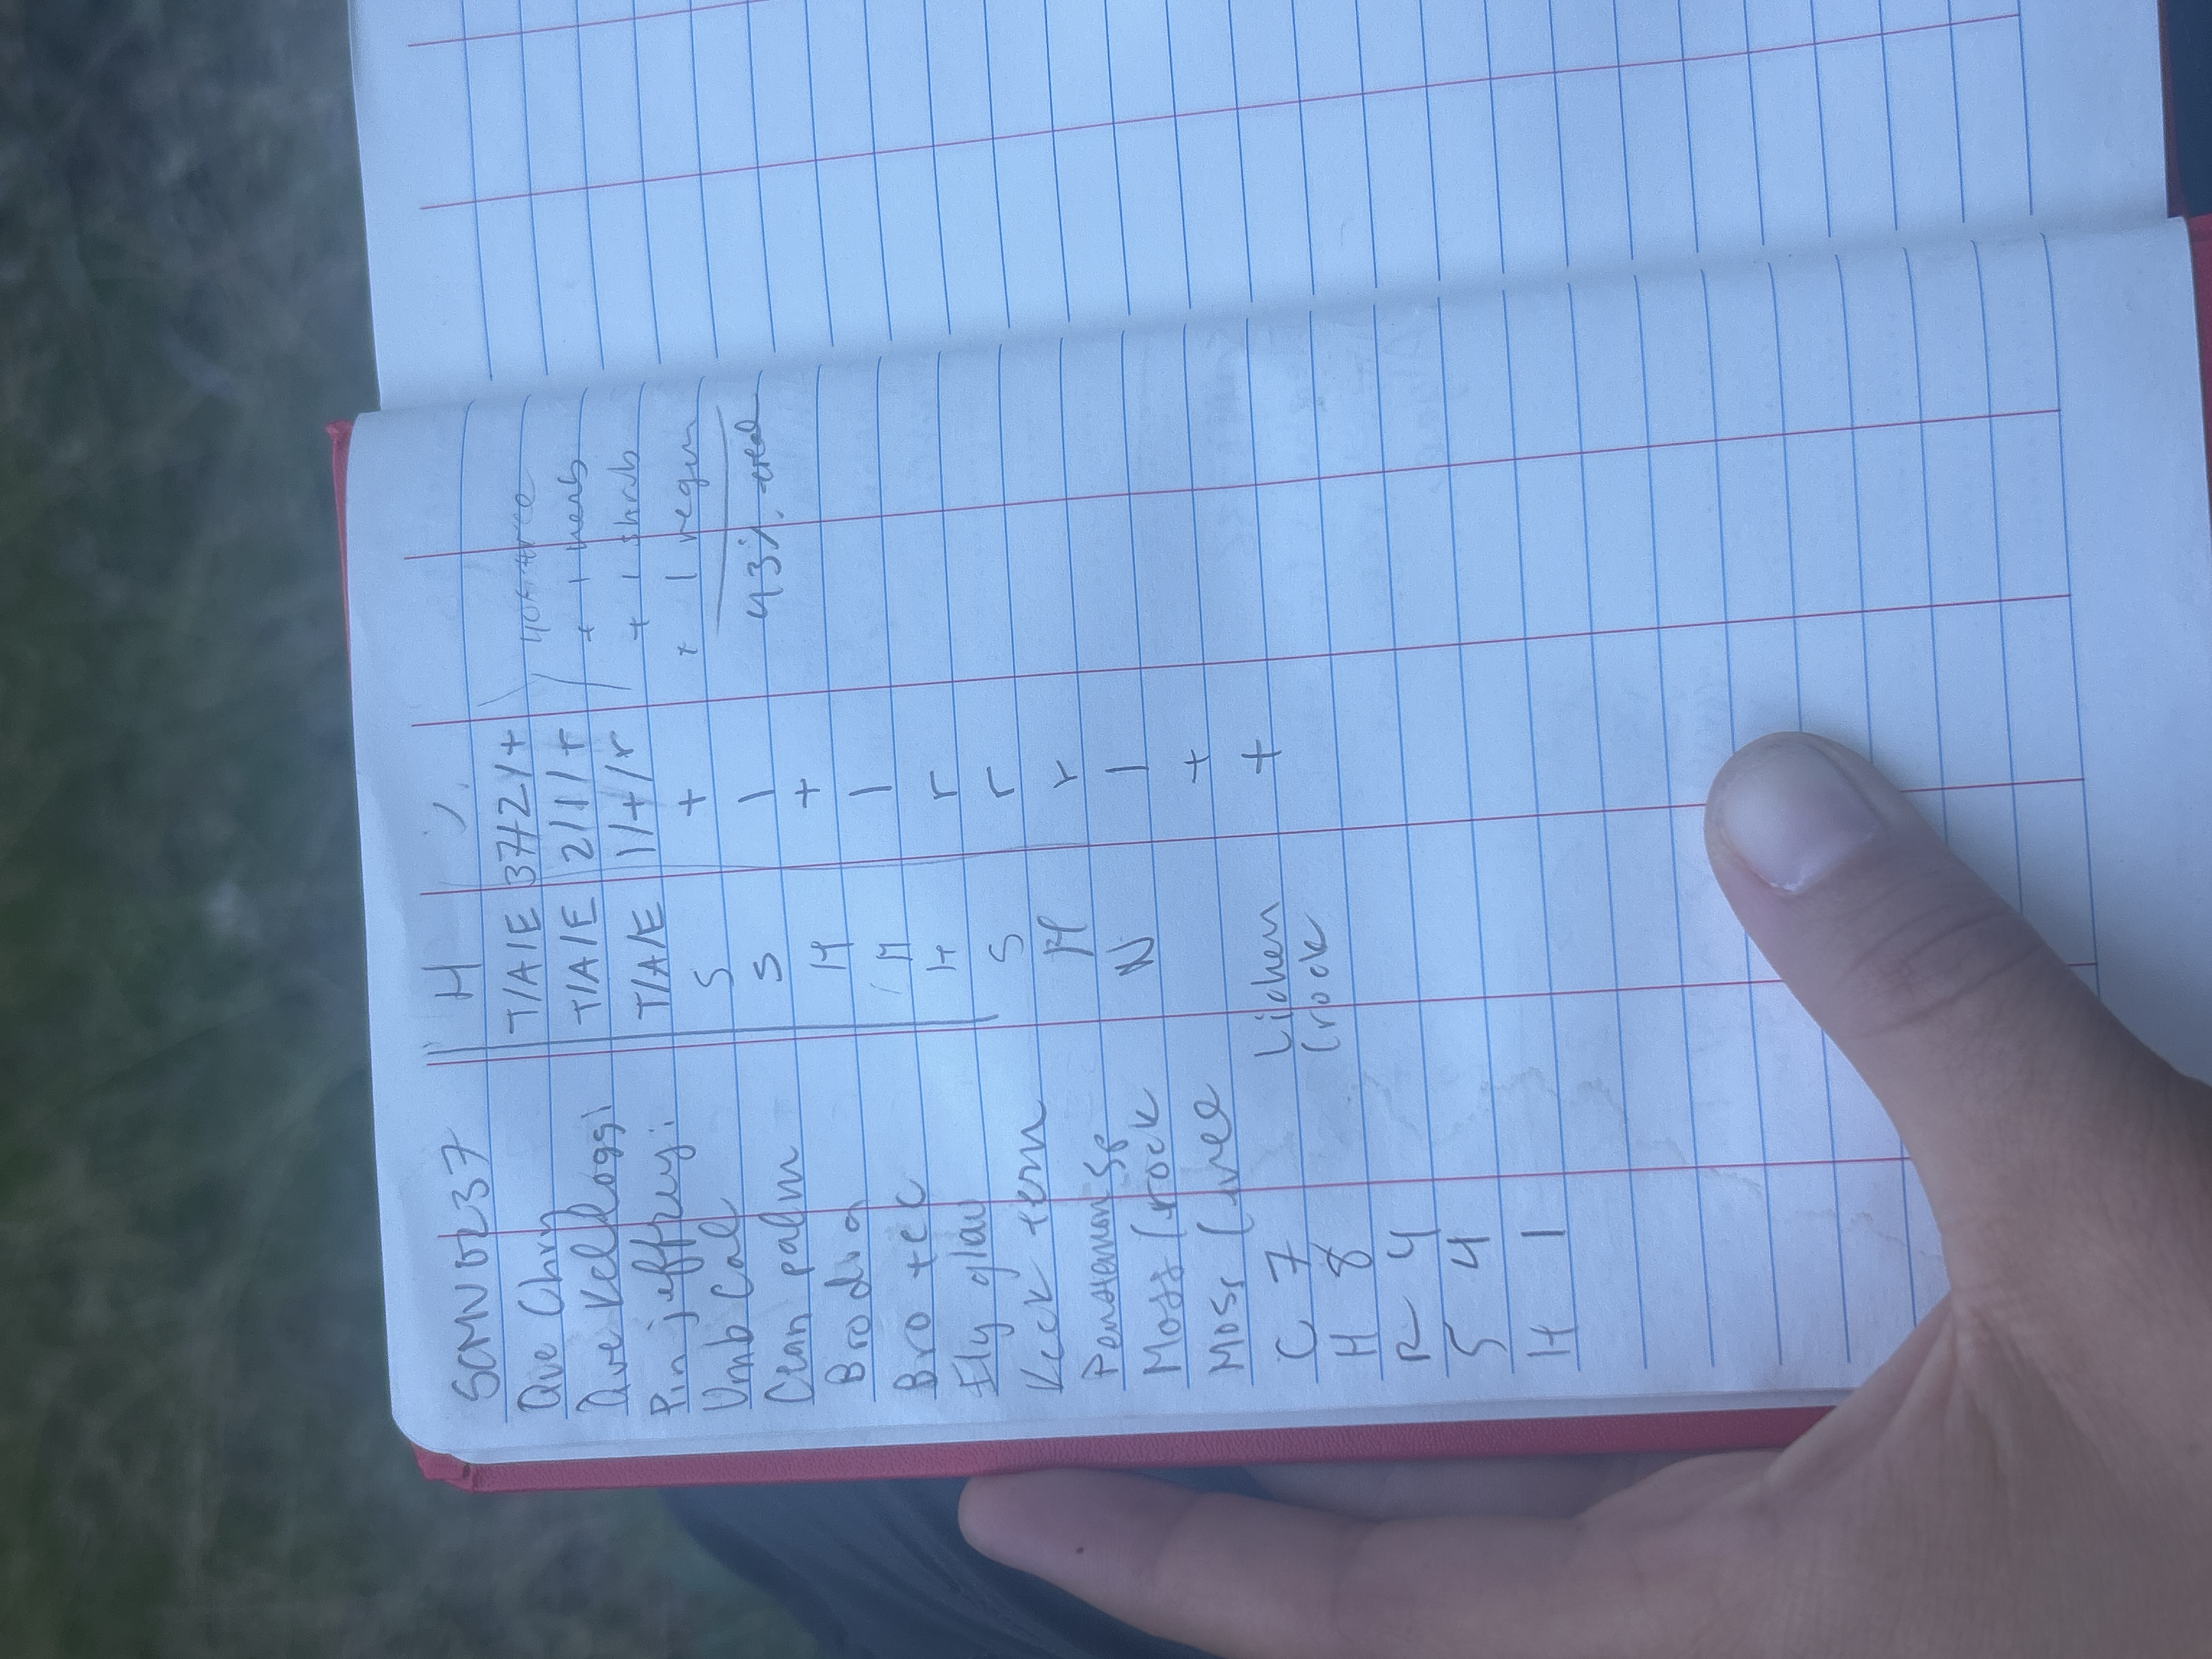 SCMN0237 H %
Que Chry T/A/E 37/2/+ 40% tree
Que Kelloggi T/A/E 2/1/+ + 1 herb
Pin jeffreyi T/A/E 1/+/r + 1 shrub
Umb Cal S + + 1 regen
Cean palm S 1 43% total
Bro dia H +
Bro tec H 1
Ely glau H r
Keck tern S r
Penstemon sp H r
Moss (rock N 1
Moss (tree +
Lichen +
(rock
C 7
H 8
R 4
S 4
H 1